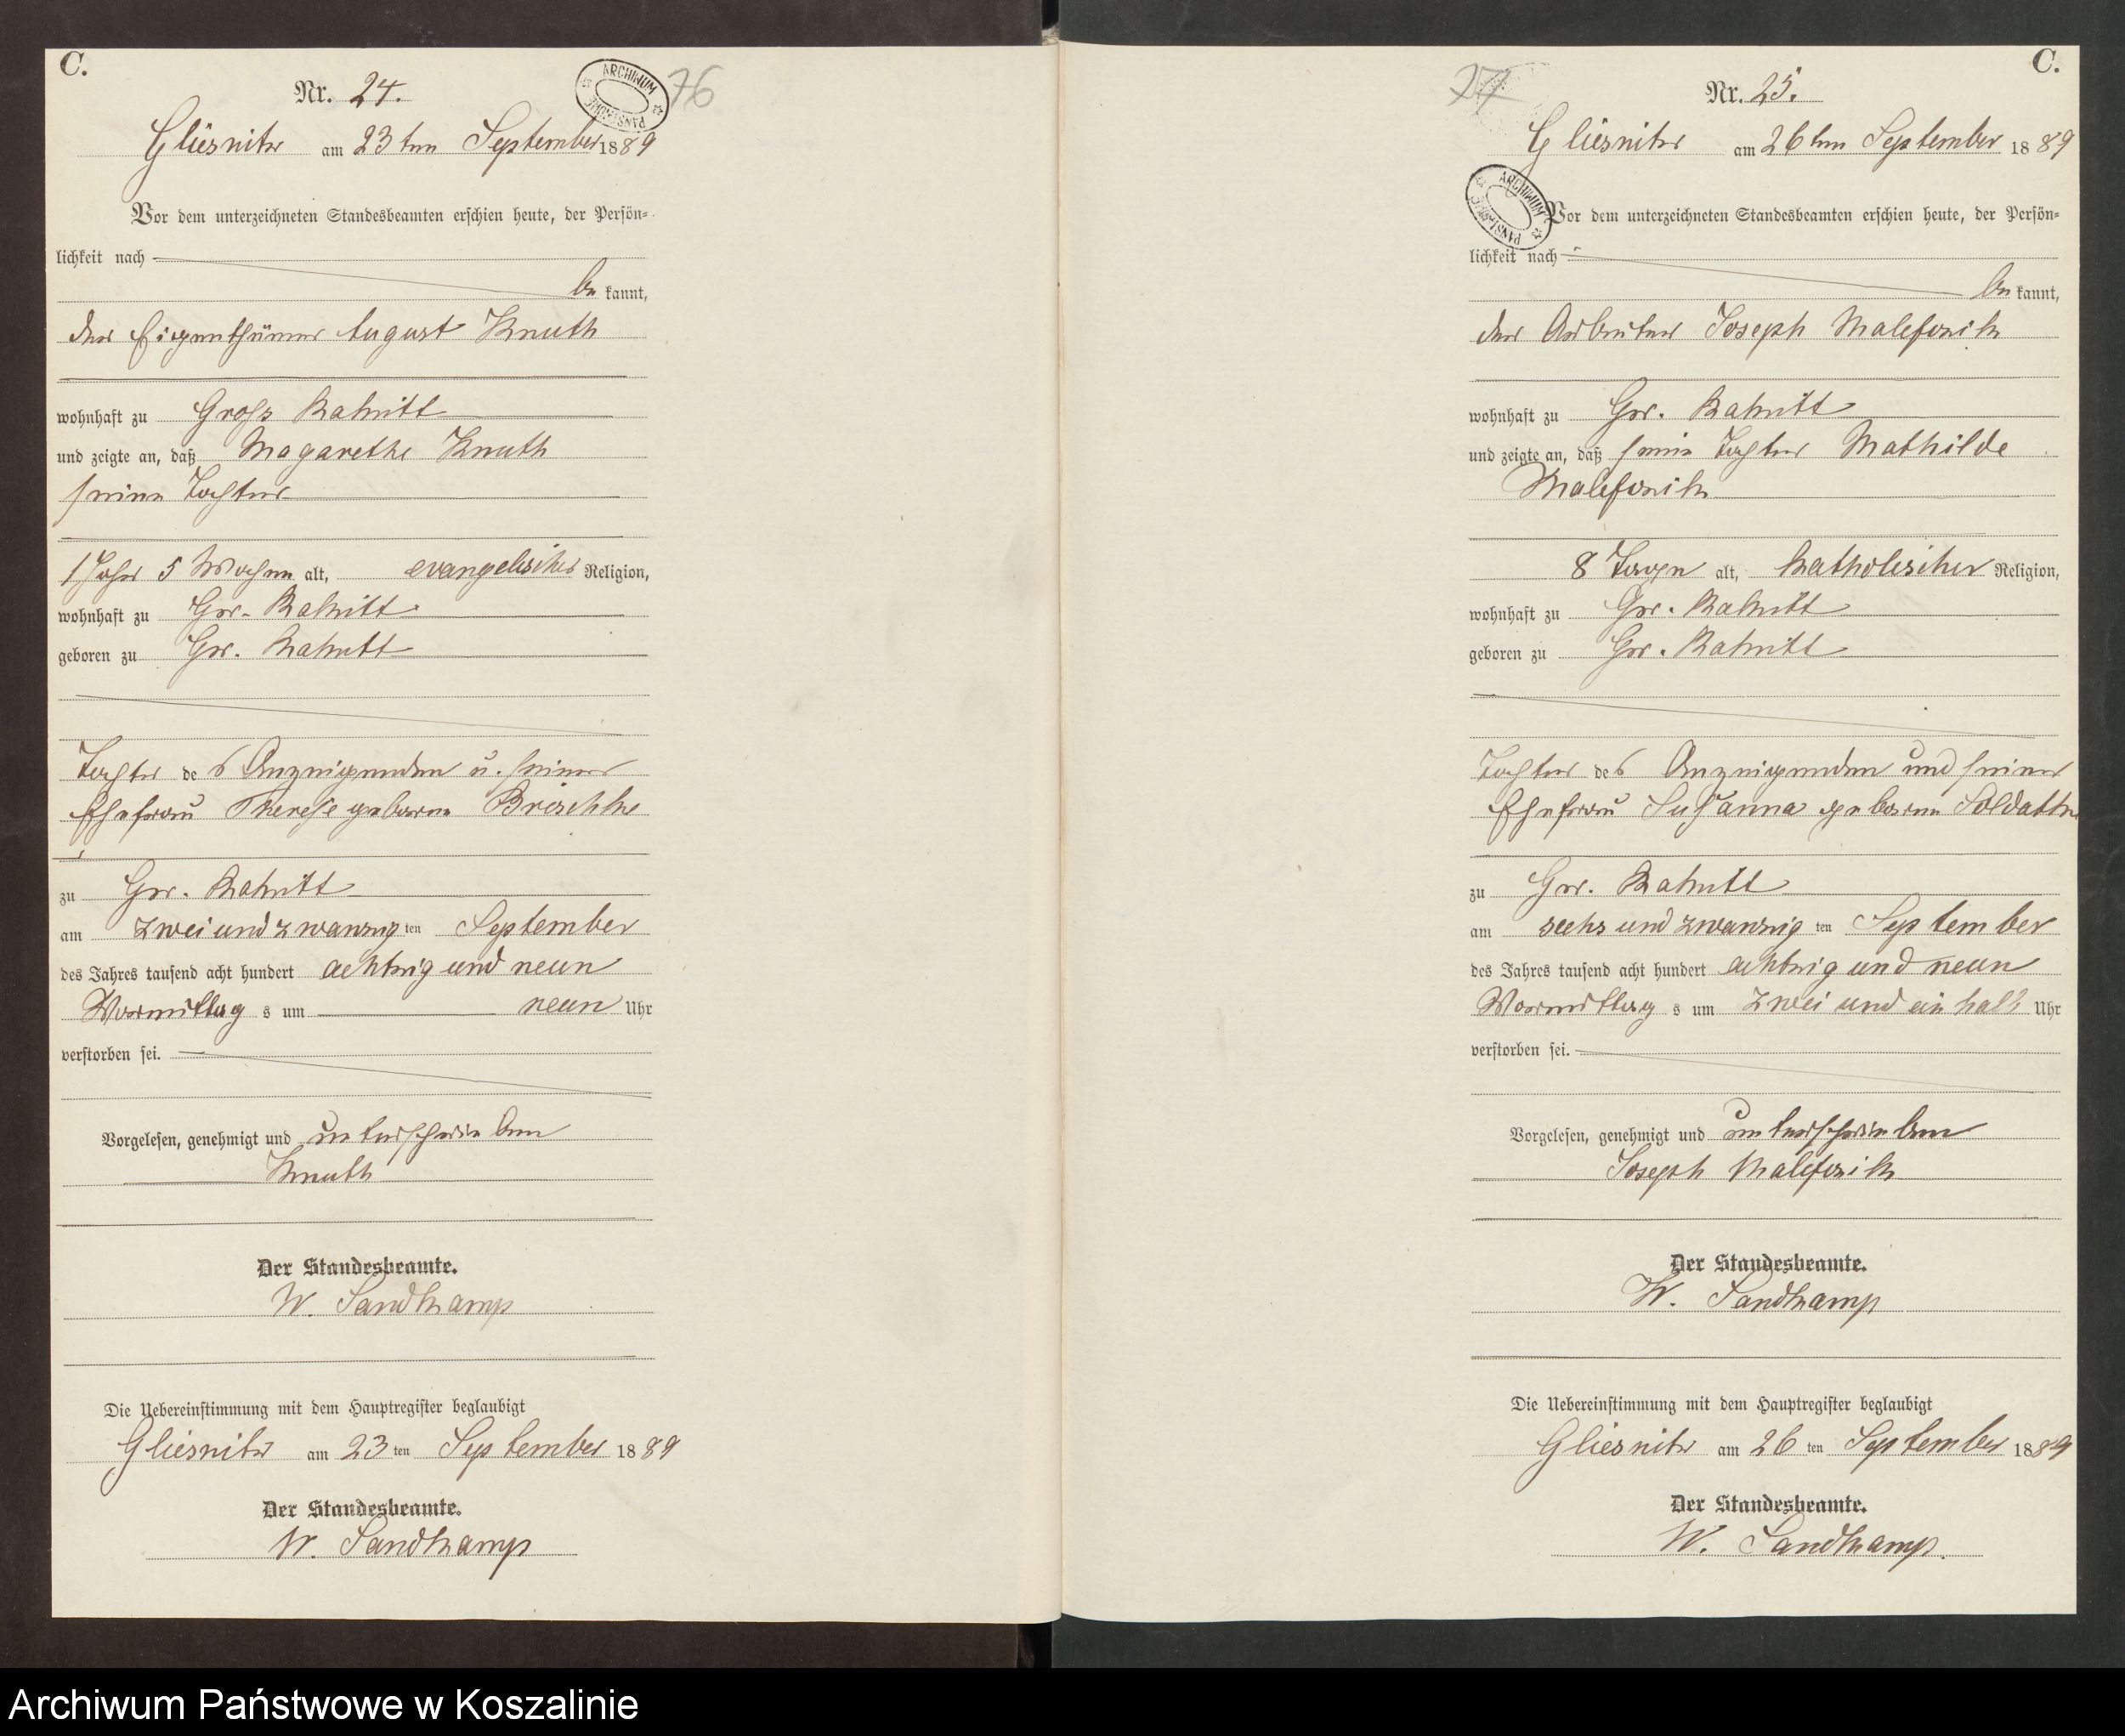 C.
Nr. 24.
ARCHIWUM PAŃSTWOWE
76
Gliesnitz am 23ten September 1889
Vor dem unterzeichneten Standesbeamten erschien heute, der Persön-
lichkeit nach
be kannt,
der Eigenthümer August Knuth
wohnhaft zu Gross Rakitt
und zeigte an, daß Magarethe Knuth
seine Tochter
1 Jahr 5 Wochen alt, evangelischer Religion,
wohnhaft zu Gr. Rakitt
geboren zu Gr. Rakitt
Tochter des Anzeigenden u. seiner
Ehefrau Therese geborne Brischke
zu Gr. Rakitt
am zwei und zwanzig ten September
des Jahres tausend acht hundert achtzig und neun
Vormittag s um neun Uhr
verstorben sei.
Vorgelesen, genehmigt und unterschrieben
Knuth
Der Standesbeamte.
W. Sandkamp
Die Uebereinstimmung mit dem Hauptregister beglaubigt
Gliesnitz am 23 ten September 1889
Der Standesbeamte.
W. Sandkamp
C.
77
Nr. 25.
Gliesnitz am 26ten September 1889
ARCHIWUM PAŃSTWOWE
Vor dem unterzeichneten Standesbeamten erschien heute, der Persön-
lichkeit nach
be kannt,
der Arbeiter Joseph Malefzik
wohnhaft zu Gr. Rakitt
und zeigte an, daß seine Tochter Mathilde
Malefzik
8 Tage alt, katholischer Religion,
wohnhaft zu Gr. Rakitt
geboren zu Gr. Rakitt
Tochter des Anzeigenden und seiner
Ehefrau Susanna geborne Soldattke
zu Gr. Rakitt
am sechs und zwanzig ten September
des Jahres tausend acht hundert achtzig und neun
Vormittag s um zwei und ein halb Uhr
verstorben sei.
Vorgelesen, genehmigt und unterschrieben
Joseph Malefzik
Der Standesbeamte.
W. Sandkamp
Die Uebereinstimmung mit dem Hauptregister beglaubigt
Gliesnitz am 26 ten September 1889
Der Standesbeamte.
W. Sandkamp.
Archiwum Państwowe w Koszalinie